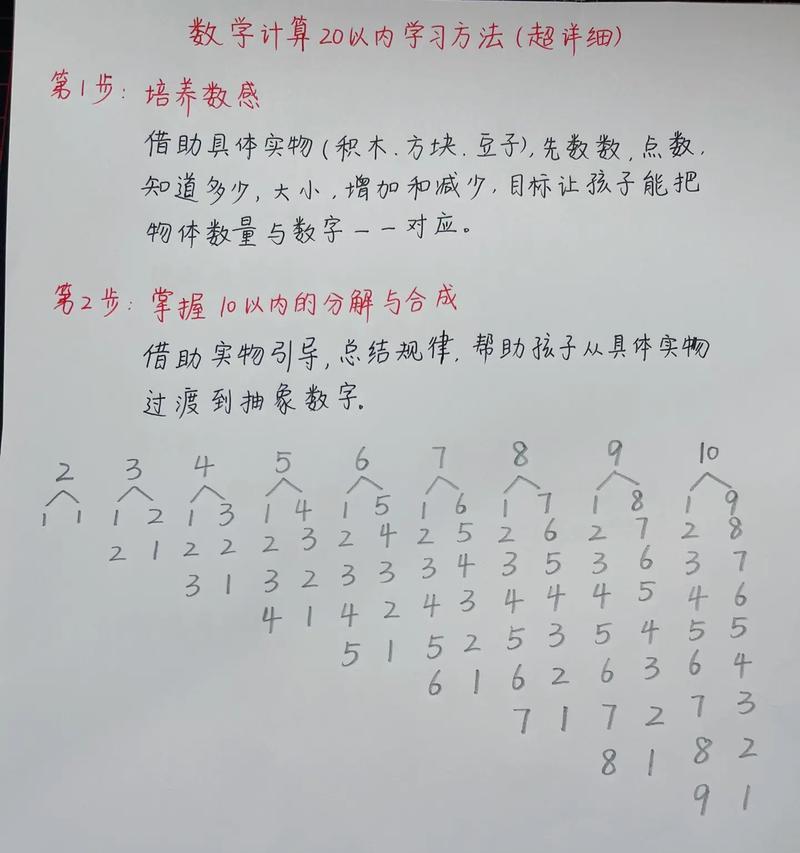 数学计算20以内学习方法(超详细)
第1步: 培养数感
借助具体实物(积木、方块、豆子),先数数,点数,
知道多少,大小,增加和减少,目标让孩子能把
物体数量与数字一一对应。
第2步: 掌握10以内的分解与合成
借助实物引导,总结规律,帮助孩子从具体实物
过渡到抽象数字。
2 3 4 5 6 7 8 9 10
1 1 1 2 1 3 1 4 1 5 1 6 1 7 1 8 1 9
2 1 2 2 2 3 2 4 2 5 2 6 2 7 2 8
3 1 3 2 3 3 3 4 3 5 3 6 3 7
4 1 4 2 4 3 4 4 4 5 4 6
5 1 5 2 5 3 5 4 5 5
6 1 6 2 6 3 6 4
7 1 7 2 7 3
8 1 8 2
9 1